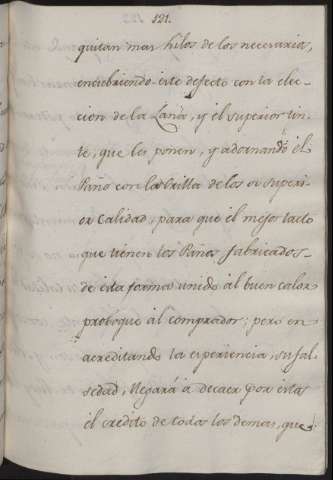 121.
quitan mas hilos de los necesarios,
encubriendo este defecto con la elec-
cion de la Lana, y el superior tin-
te, que les ponen, y adornando el
Paño con la Orilla de los de superi-
or Calidad, para que el mejor tacto
que tienen los Paños fabricados
de esta forma unido al buen calor
proboque al comprador; pero en
acreditando la esperiencia, su fal-
sedad, llegará à decaer por estos
el credito de todos los demas, que